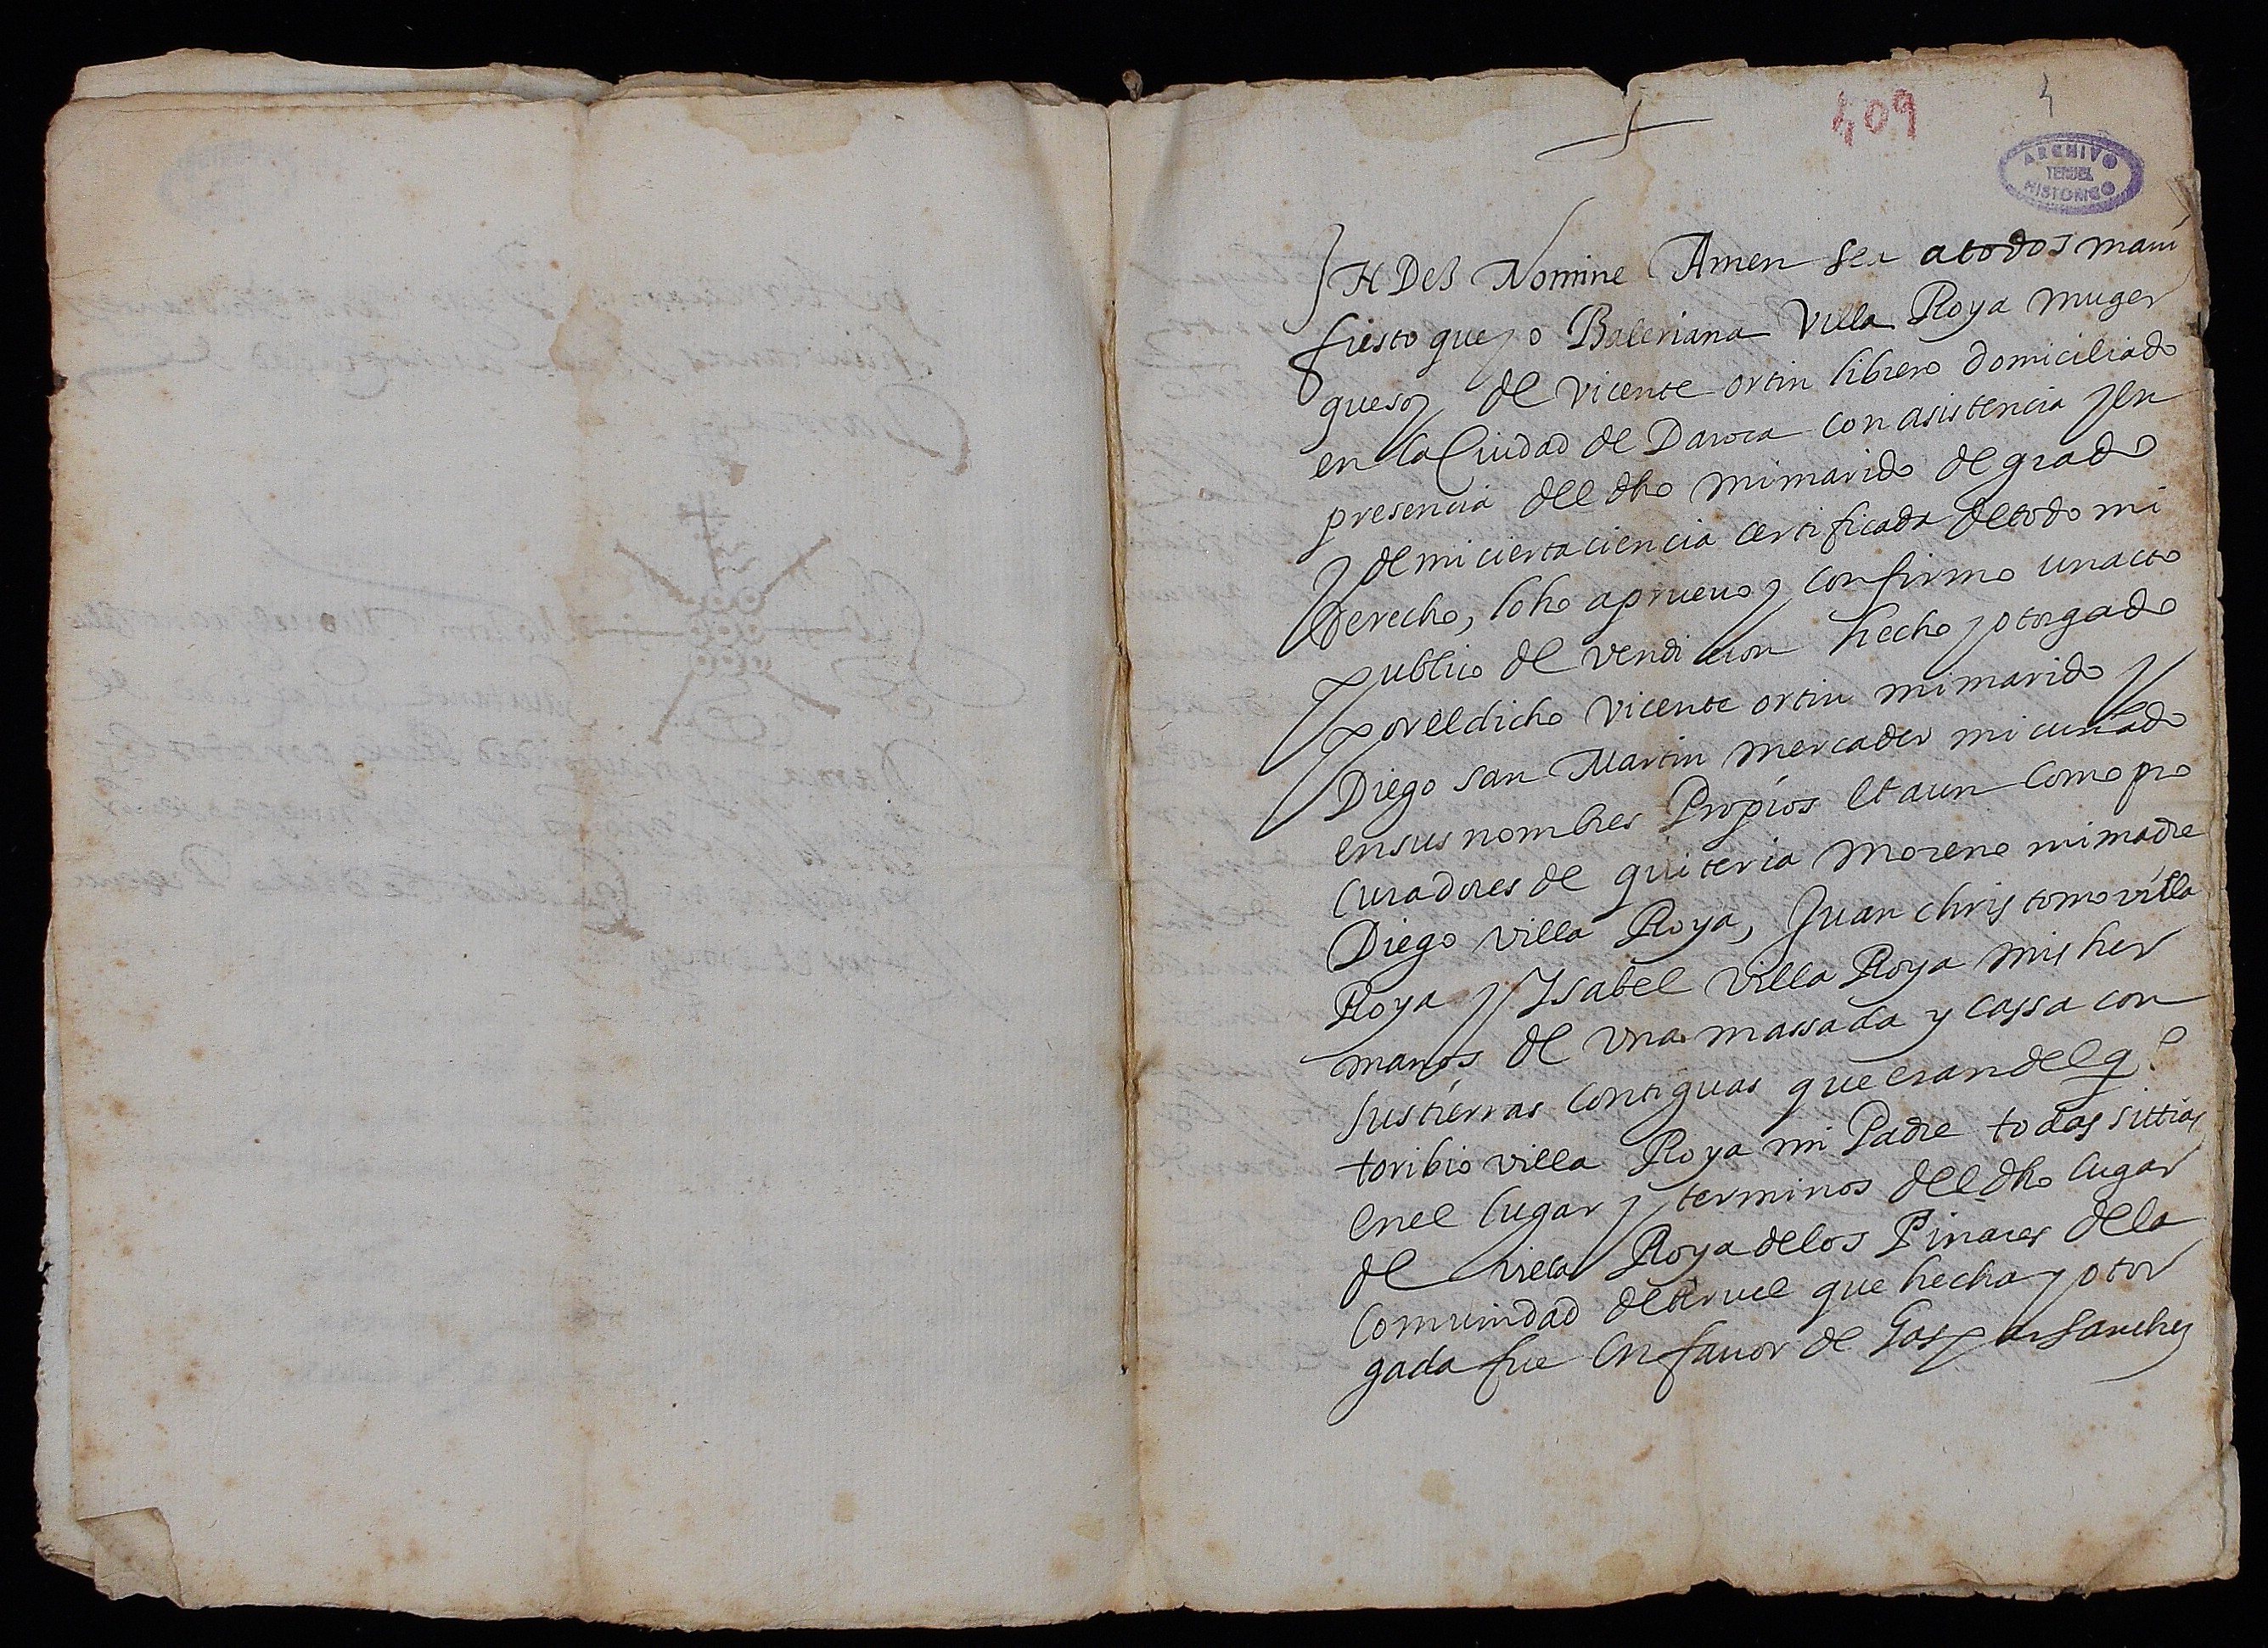 409
4
ARCHIVO
TERUEL
HISTORICO
IN Dei Nomine Amen sea a todos mani
fiesto que yo Baleriana Villa Roya muger
que soy de Vicente ortin librero domiciliado
en la Ciudad de Daroca con asistencia y en
presencia del dho mi marido de grado
y de mi cierta ciencia certificada de todo mi
derecho, loho aprueuo y confirmo un acto
publico de vendicion hecho y otorgado
por el dicho Vicente ortin mi marido y
Diego san Martin mercader mi cuñado
en sus nombres Propios et aun como pro
curadores de quiteria Moreno mi madre
Diego villa Roya, Juan chris tomo villa
Roya y Ysabel Villa Roya mis her
manos de una massada y cassa con
sus tierras contiguas que eran del qo
toribio villa Roya mi Padre todas sittias
en el lugar y terminos del dho lugar
de villa Roya de los Pinares de la
Comunidad de teruel que hecha y otor
gada fue en fauor de Gaspar Sanchez